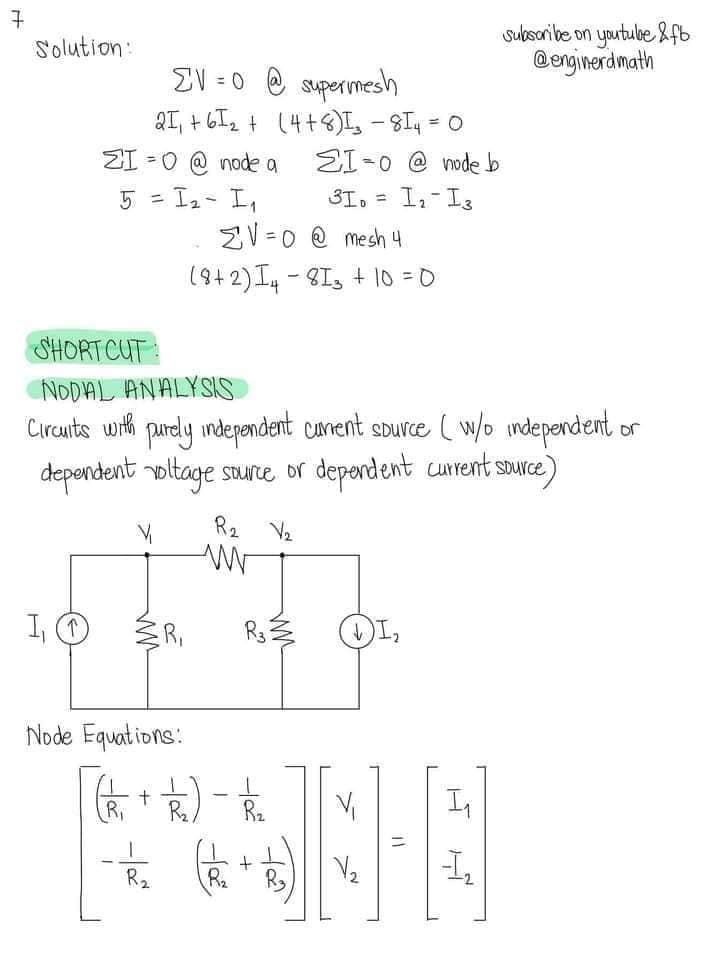 7
Solution:
subscribe on youtube & fb
@enginerdmath
ΣV = 0 @ supermesh
2I₁ + 6I₂ + (4+8)I₃ - 8I₄ = 0
ΣI = 0 @ node a ΣI = 0 @ node b
5 = I₂ - I₁ 3I₀ = I₂ - I₃
ΣV = 0 @ mesh 4
(8+2)I₄ - 8I₃ + 10 = 0
SHORTCUT:
NODAL ANALYSIS
Circuits with purely independent current source (w/o independent or
dependent voltage source or dependent current source)
V₁ R₂ V₂
I₁ R₁ R₃ I₂
Node Equations:
[(1/R₁ + 1/R₂) - 1/R₂] [V₁] = [I₁]
[- 1/R₂ (1/R₂ + 1/R₃)] [V₂] [-I₂]